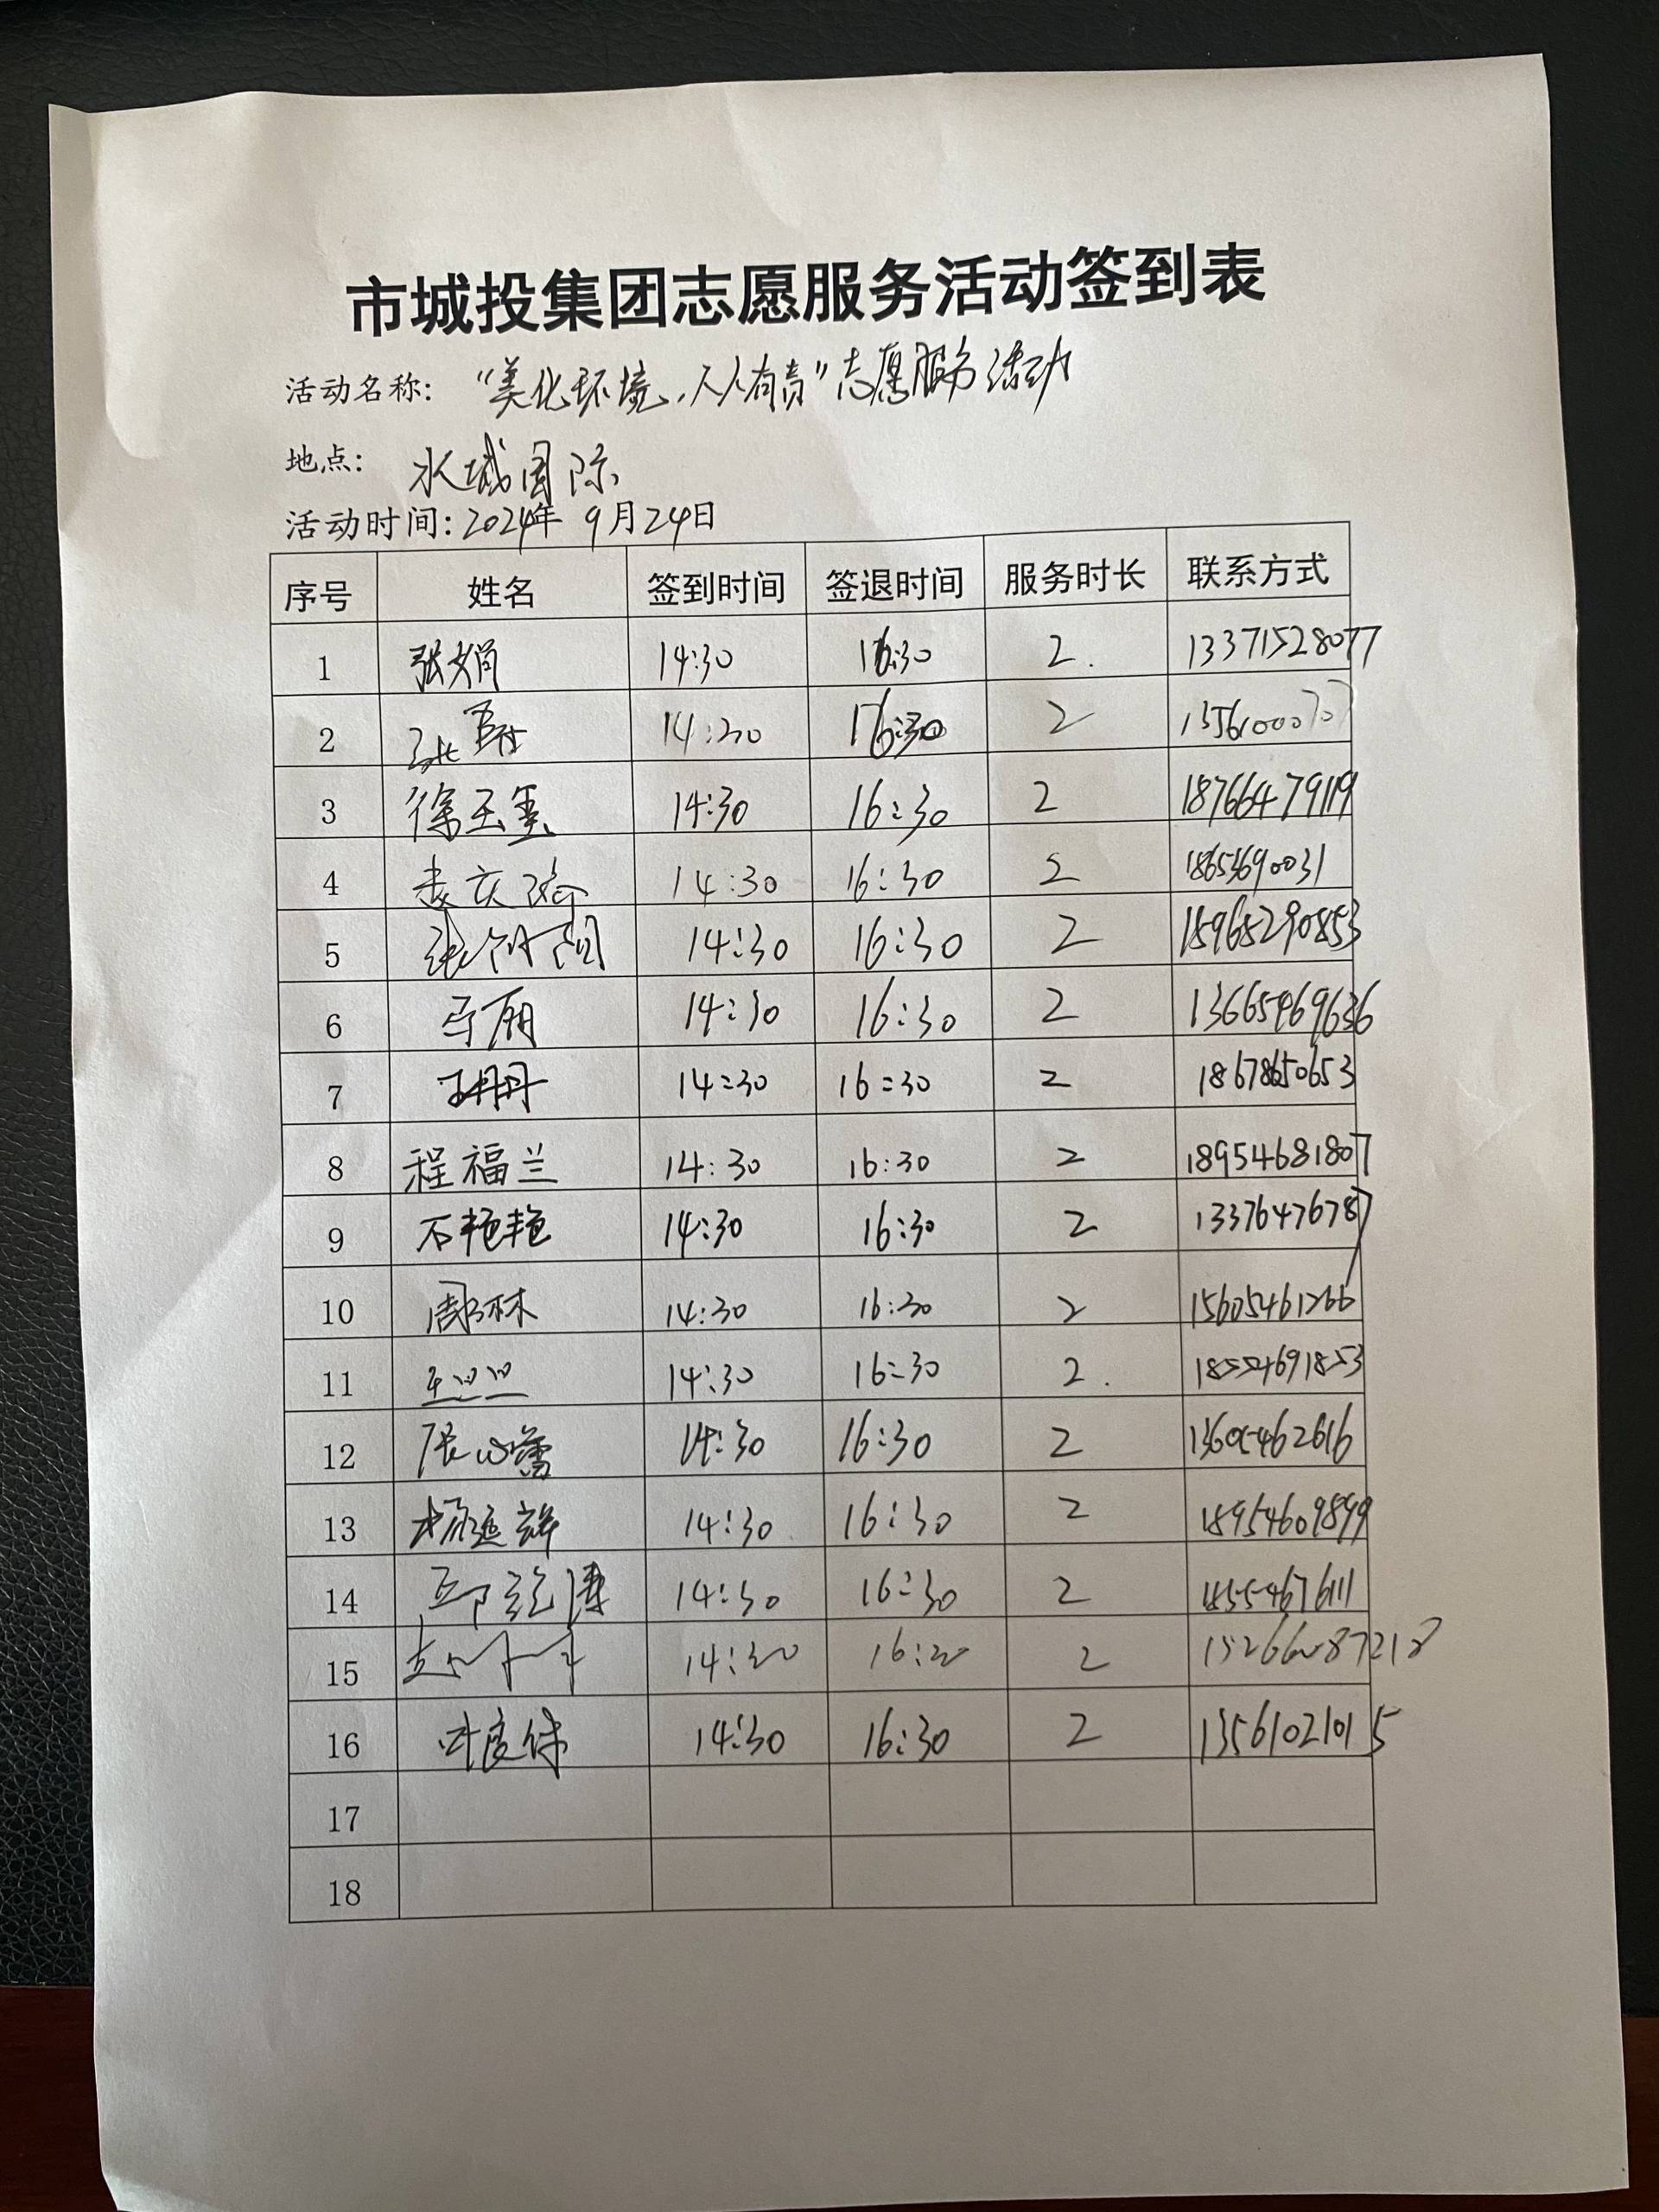 市城投集团志愿服务活动签到表
活动名称: "美化环境,人人有责"志愿服务活动
地点: 水城国际
活动时间: 2024年 9月24日
序号 姓名 签到时间 签退时间 服务时长 联系方式
1 张娟 14:30 16:30 2. 13371528077
2 14:30 16:30 2
3 徐玉 14:30 16:30 2 18766479119
4 14:30 16:30 2
5 14:30 16:30 2 18965290853
6 丽 14:30 16:30 2 13665469636
7 王丹丹 14:30 16:30 2 18678650653
8 程福兰 14:30 16:30 2 18954681807
9 石艳艳 14:30 16:30 2 13376476787
10 林 14:30 16:30 2 15605461266
11 14:30 16:30 2. 18554691853
12 张心蕾 14:30 16:30 2 13605462616
13 杨延辉 14:30 16:30 2 18954609899
14 14:30 16:30 2 18554676111
15 14:30 16:30 2
16 14:30 16:30 2 13561021015
17
18